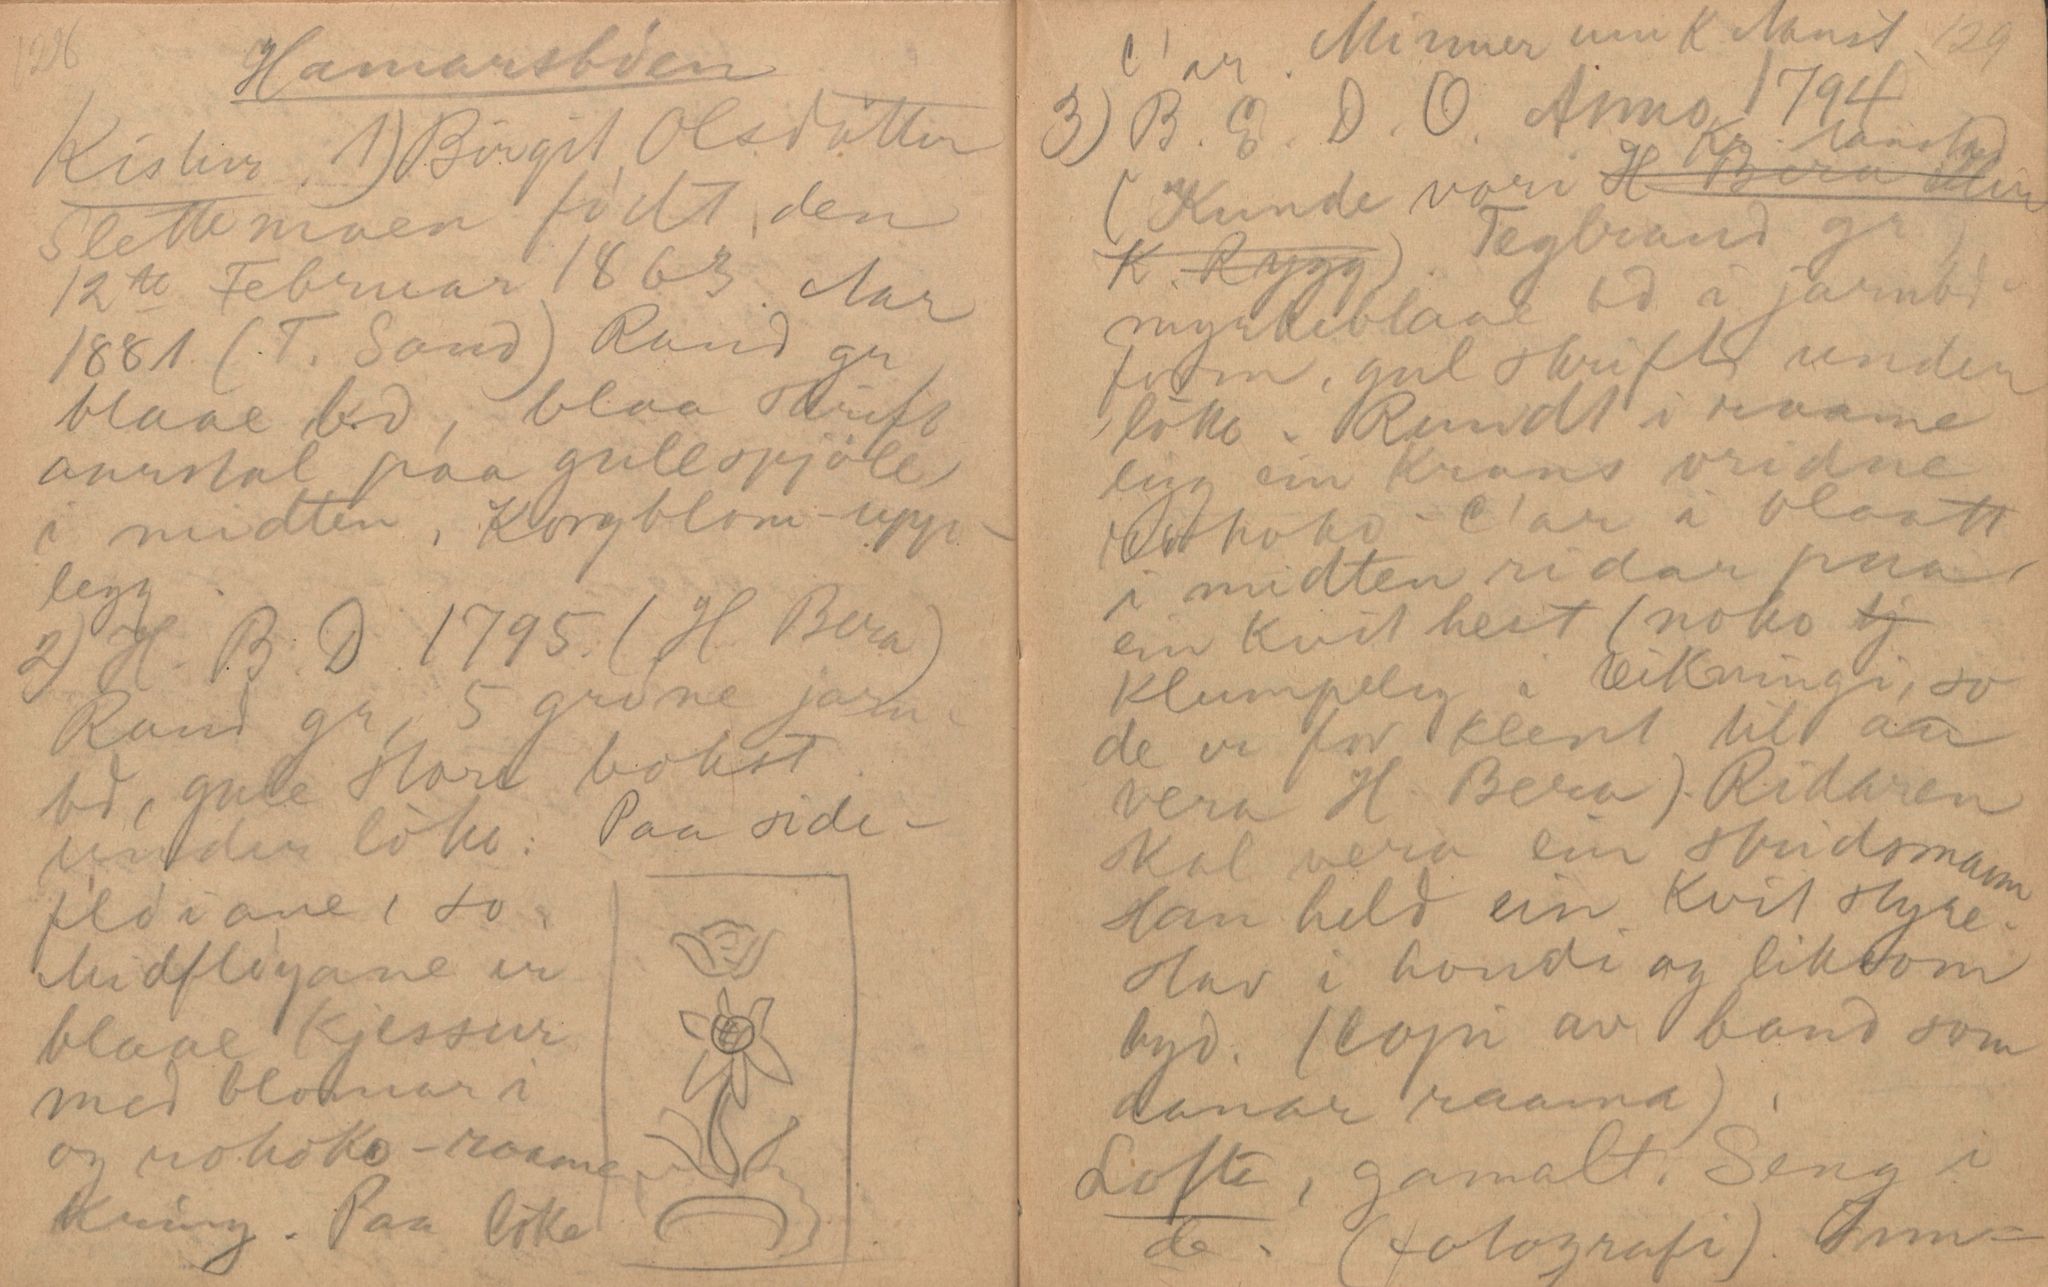 128
Hamarsböen
Kistur. 1) Birgit Olsdötter
Slettemoen födt den
12te Februar 1863. Aar
1881. (T. Sand) Raud gr,
blaae bd, blaa skrift
aarstal paa gullspjöld
i midten, Korgblom-upp-
legg.
2) H. B. D. 1795. (H. Bera)
Raud gr, 5 gröne jarn-
bd, gule store bokst.
under löke. Paa side-
fldiane, so
midflöyane er
blaae kjessur
med blomar i
og rokoko-raame
kring. Paa löke
129
C'ar. Minner um K. Aanst.
3) B. E. D. O. Anno 1794
Kr. Aanstad
(Kunde vori H. Bera eller
K. Rygg). Teglraud gr,
myrkeblaae bd i jarnbd-
form, gul skrift under
löke. Rundt i raame
ligg ein krans vridne
rokoko-C'ar i blaatt
i midten ridar paa
ein kvit hest (noko tj
klumpeleg i teikningi, so
de er for kleent til aa
vera H. Bera). Ridaren
skal vera ein stridsmann
Han held ein kvit styre-
stav i hondi og liksom
byd. (Copi av band som
danar raama).
Lofte, gamalt. Seng i
de. (fotografi). Inn-